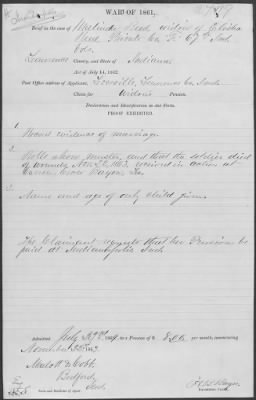 WAR OF 1861.
Brief in the case of Malinda Reed widow of Elisha
Reed Private Co. F. 67th Ind
Vols.
Lawrence County, and State of Indiana
Act of July 14, 1862.
Post Office address of Applicant, Leesville, Lawrence Co. Ind
Claim for Widow's Pension.
Declaration and Identification in due Form.
PROOF EXHIBITED.
1. Record evidence of marriage.
2. Rolls show muster, and that the soldier died
of wounds Nov. 1863, received in action at
La
3. Name and age of only child given.
The Claimant requests that her Pension be
paid at Indianapolis Ind
Admitted July 1864, to a Pension of $ 8.00 per month
November 1863
Malott & Cobb
Bedford
Ind